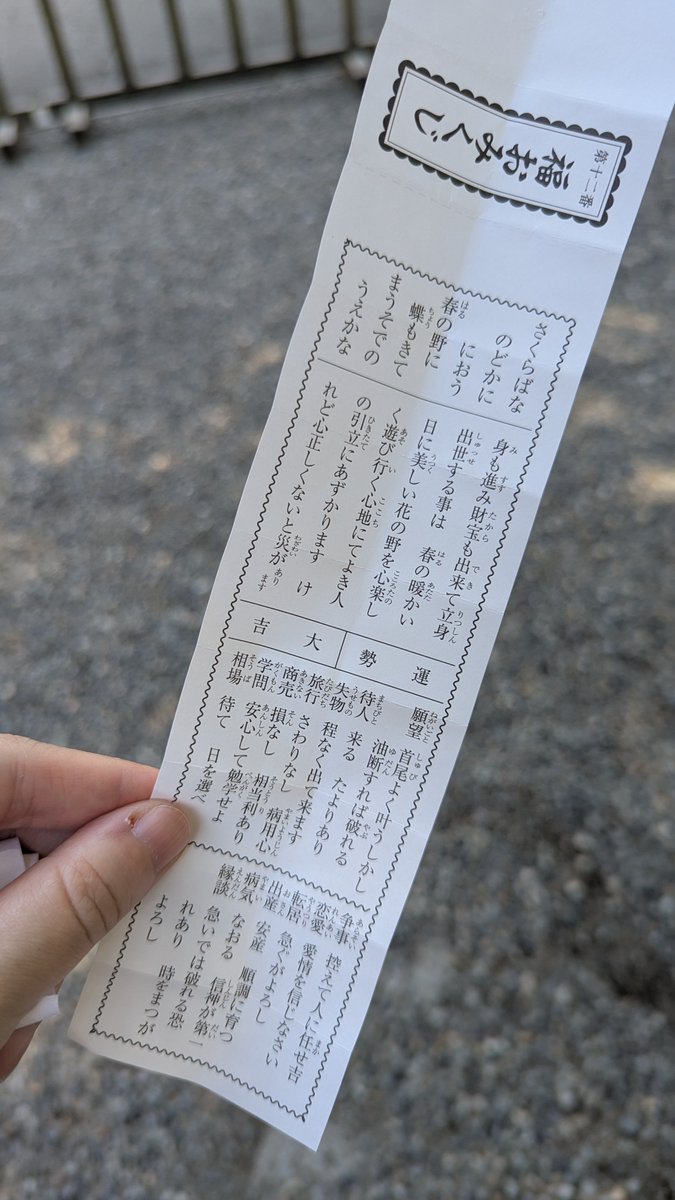 第十二番
福おみくじ
さくらばな
のどかに
におう
春の野に
蝶もきて
まうそでの
うえかな
身も進み財宝も出来て立身
出世する事は　春の暖かい
日に美しい花の野を心楽し
く遊び行く心地にてよき人
の引立にあずかります　け
れど心正しくないと災があります
運勢
大吉
願望　首尾よく叶うしかし
油断すれば破れる
待人　来る　たよりあり
失物　程なく出て来ます
旅行　さわりなし　病用心
商売　損なし　相当利あり
学問　安心して勉学せよ
相場　待て　日を選べ
争事　控えて人に任せ吉
恋愛　愛情を信じなさい
転居　急ぐがよろし
出産　安産　順調に育つ
病気　なおる　信神が第一
縁談　急いでは破れる恐
れあり　時をまつが
よろし